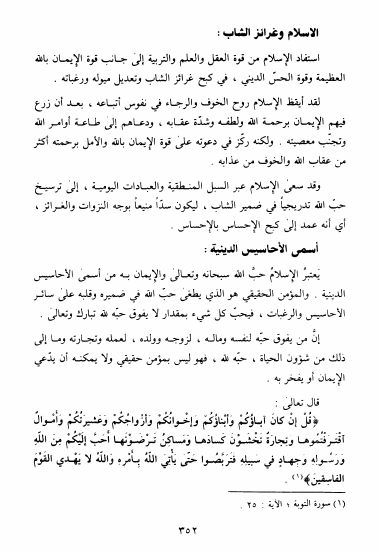 الاسلام وغرائز الشاب :
استفاد الإسلام من قوة العقل والعلم والتربية إلى جانب قوة الإيمان بالله
العظيمة وقوة الحسّ الديني ، في كبح غرائز الشاب وتعديل ميوله ورغباته .
لقد أيقظ الإسلام روح الخوف والرجاء في نفوس أتباعه ، بعد أن زرع
فيهم الإيمان برحمة الله ولطفه وشدّة عقابه ، ودعاهم إلى طاعة أوامر الله
وتجنّب معصيته . ولكنه ركّز في دعوته على قوة الإيمان بالله والأمل برحمته أكثر
من عقاب الله والخوف من عذابه .
وقد سعى الإسلام عبر السبل المنطقية والعبادات اليومية ، إلى ترسيخ
حبّ الله تدريجياً في ضمير الشاب ، ليكون سدّاً منيعاً بوجه النزوات والغرائز ،
أي أنه عمد إلى كبح الإحساس بالإحساس .
أسمى الأحاسيس الدينية :
يَعتبرُ الإسلامُ حبَّ الله سبحانه وتعالى والإيمان به من أسمى الأحاسيس
الدينية . والمؤمن الحقيقي هو الذي يطغى حبّ الله في ضميره وقلبه على سائر
الأحاسيس والرغبات ، فيحبّ كل شيء بمقدار لا يفوق حبّه لله تبارك وتعالى .
إنَّ من يفوق حبّه لنفسه وماله ، لزوجه وولده ، لعمله وتجارته وما إلى
ذلك من شؤون الحياة ، حبّه لله ، فهو ليس بمؤمن حقيقي ولا يمكنه أن يدّعي
الإيمان أو يفخر به .
قال تعالى :
﴿قُلْ إِنْ كانَ آباؤُكُمْ وَأَبْناؤُكُمْ وَإِخْوانُكُمْ وَأَزْواجُكُمْ وَعَشيرَتُكُمْ وَأَمْوالٌ
اقْتَرَفْتُمُوها وتِجارَةٌ تَخْشَوْنَ كَسادَها وَمَساكِنُ تَرْضَوْنَها أَحَبَّ إِلَيْكُمْ مِنَ اللَّهِ
وَرَسُولِهِ وَجِهادٍ في سَبيلِهِ فَتَرَبَّصُوا حَتّى يَأْتِيَ اللَّهُ بِأَمْرِهِ وَاللَّهُ لا يَهْدي القَوْمَ
الفاسِقينَ﴾(١) .
(١) سورة التوبة ؛ الآية : ٢٥ .
٣٥٢